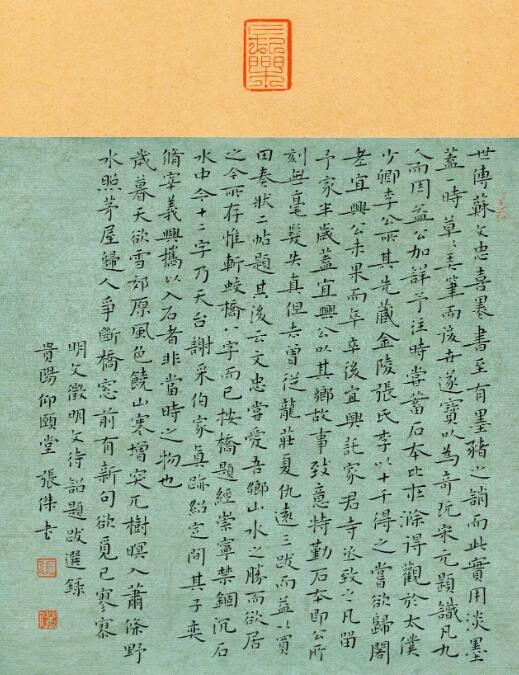 世傳蘇文忠喜墨書至有墨豬之誚而此實用淡墨
蓋一時草〻弄筆而後世遂寶以為奇玩宋元題識凡九
人而周益公加詳予往時嘗蓄石本比來滁得觀於太僕
少卿李公所其先藏金陵張氏李以十千得之嘗欲歸閣
老宜興公未果而卒卒後宜興託家君寺丞致之凡留
予家半歲蓋宜興公以其鄉故事致意特勤石本即公所
刻無毫髮失真但去曾從龍莊夏仇遠三跋而益以買
田奏狀二帖題其後云文忠嘗愛吾鄉山水之勝而欲居
之今所存惟斬蛟橋八字而已按橋題經崇寧禁錮沉石
水中今十二字乃天台謝采伯家真跡紹定間其子奕
脩宰義興攜以入石者非當時之物也
歲暮天欲雪郊原風色饒山寒增突兀樹暝入蕭條野
水照茅屋歸人爭斷橋窓前有新句欲覓已寥寥
明文徵明文待詔題跋選錄
貴陽仰頤堂張傑書